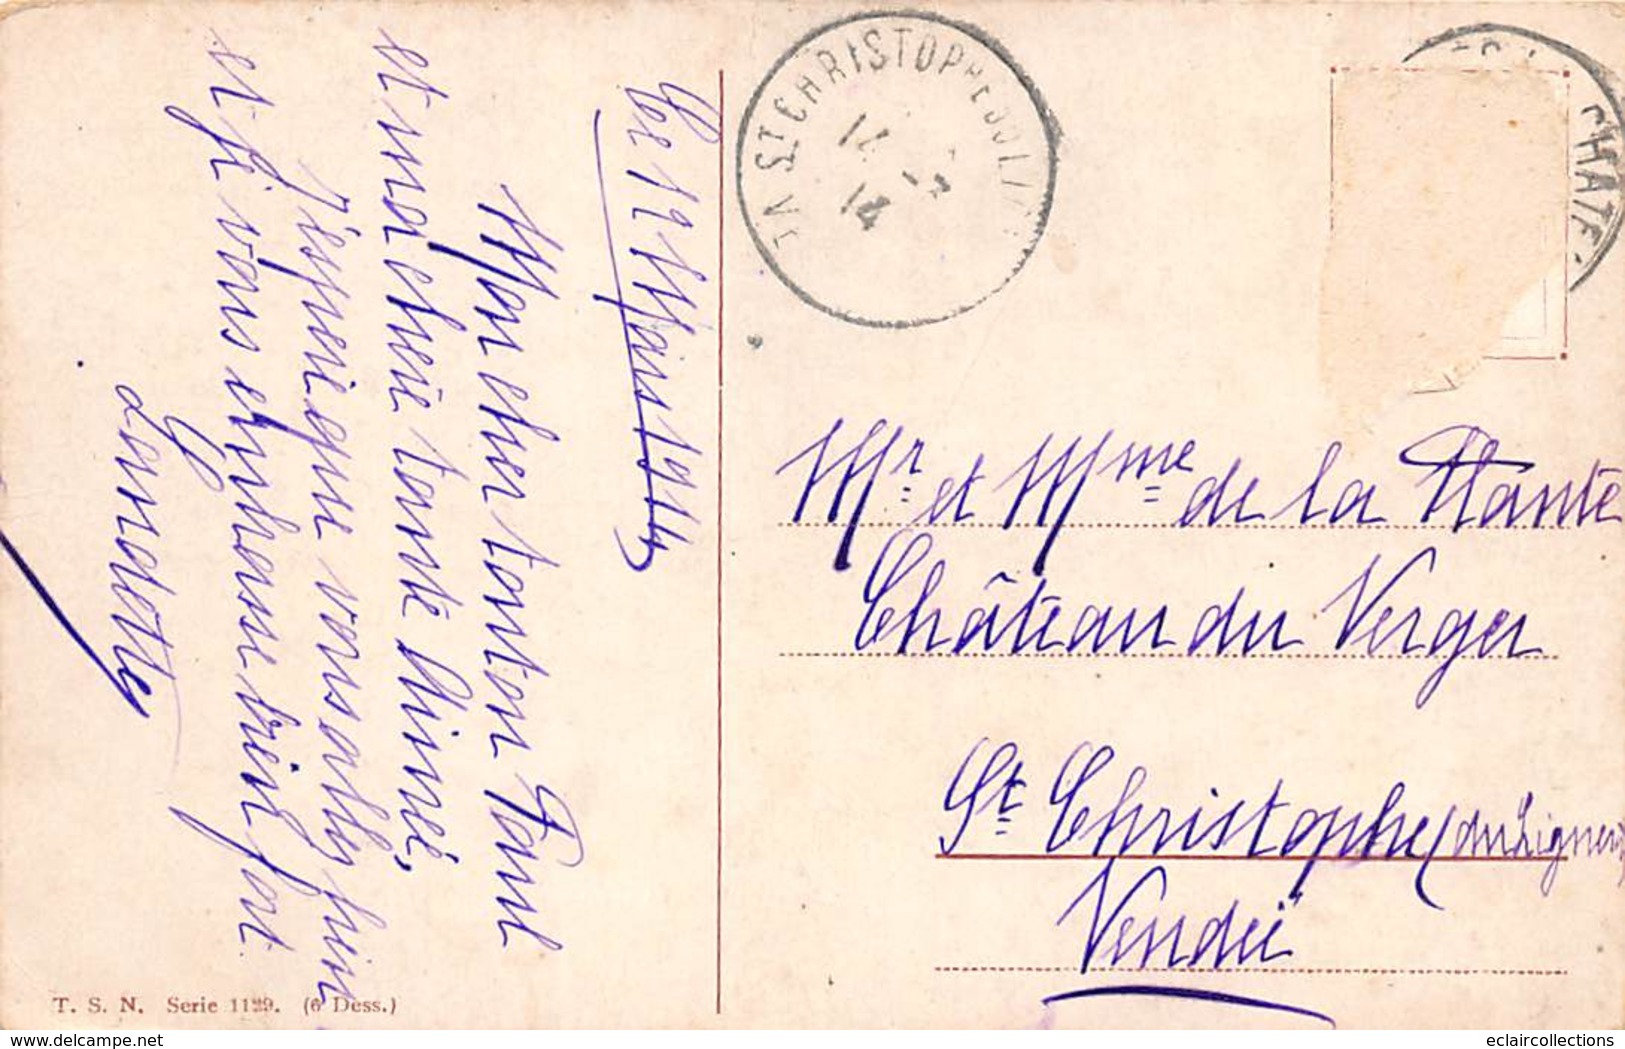 Ce 12 Mars 1914
Mon cher tonton Paul
et ma chère tante Mimé,
J'espère que vous allez bien
et je vous embrasse bien fort
Landette
T. S. N. Serie 1129. (6 Dess.)
ST CHRISTOPHE
14
CHATE
Mr et Mme de la Plante
Château du Verger
St Christophe (du Ligneron)
Vendée
eclaircollections